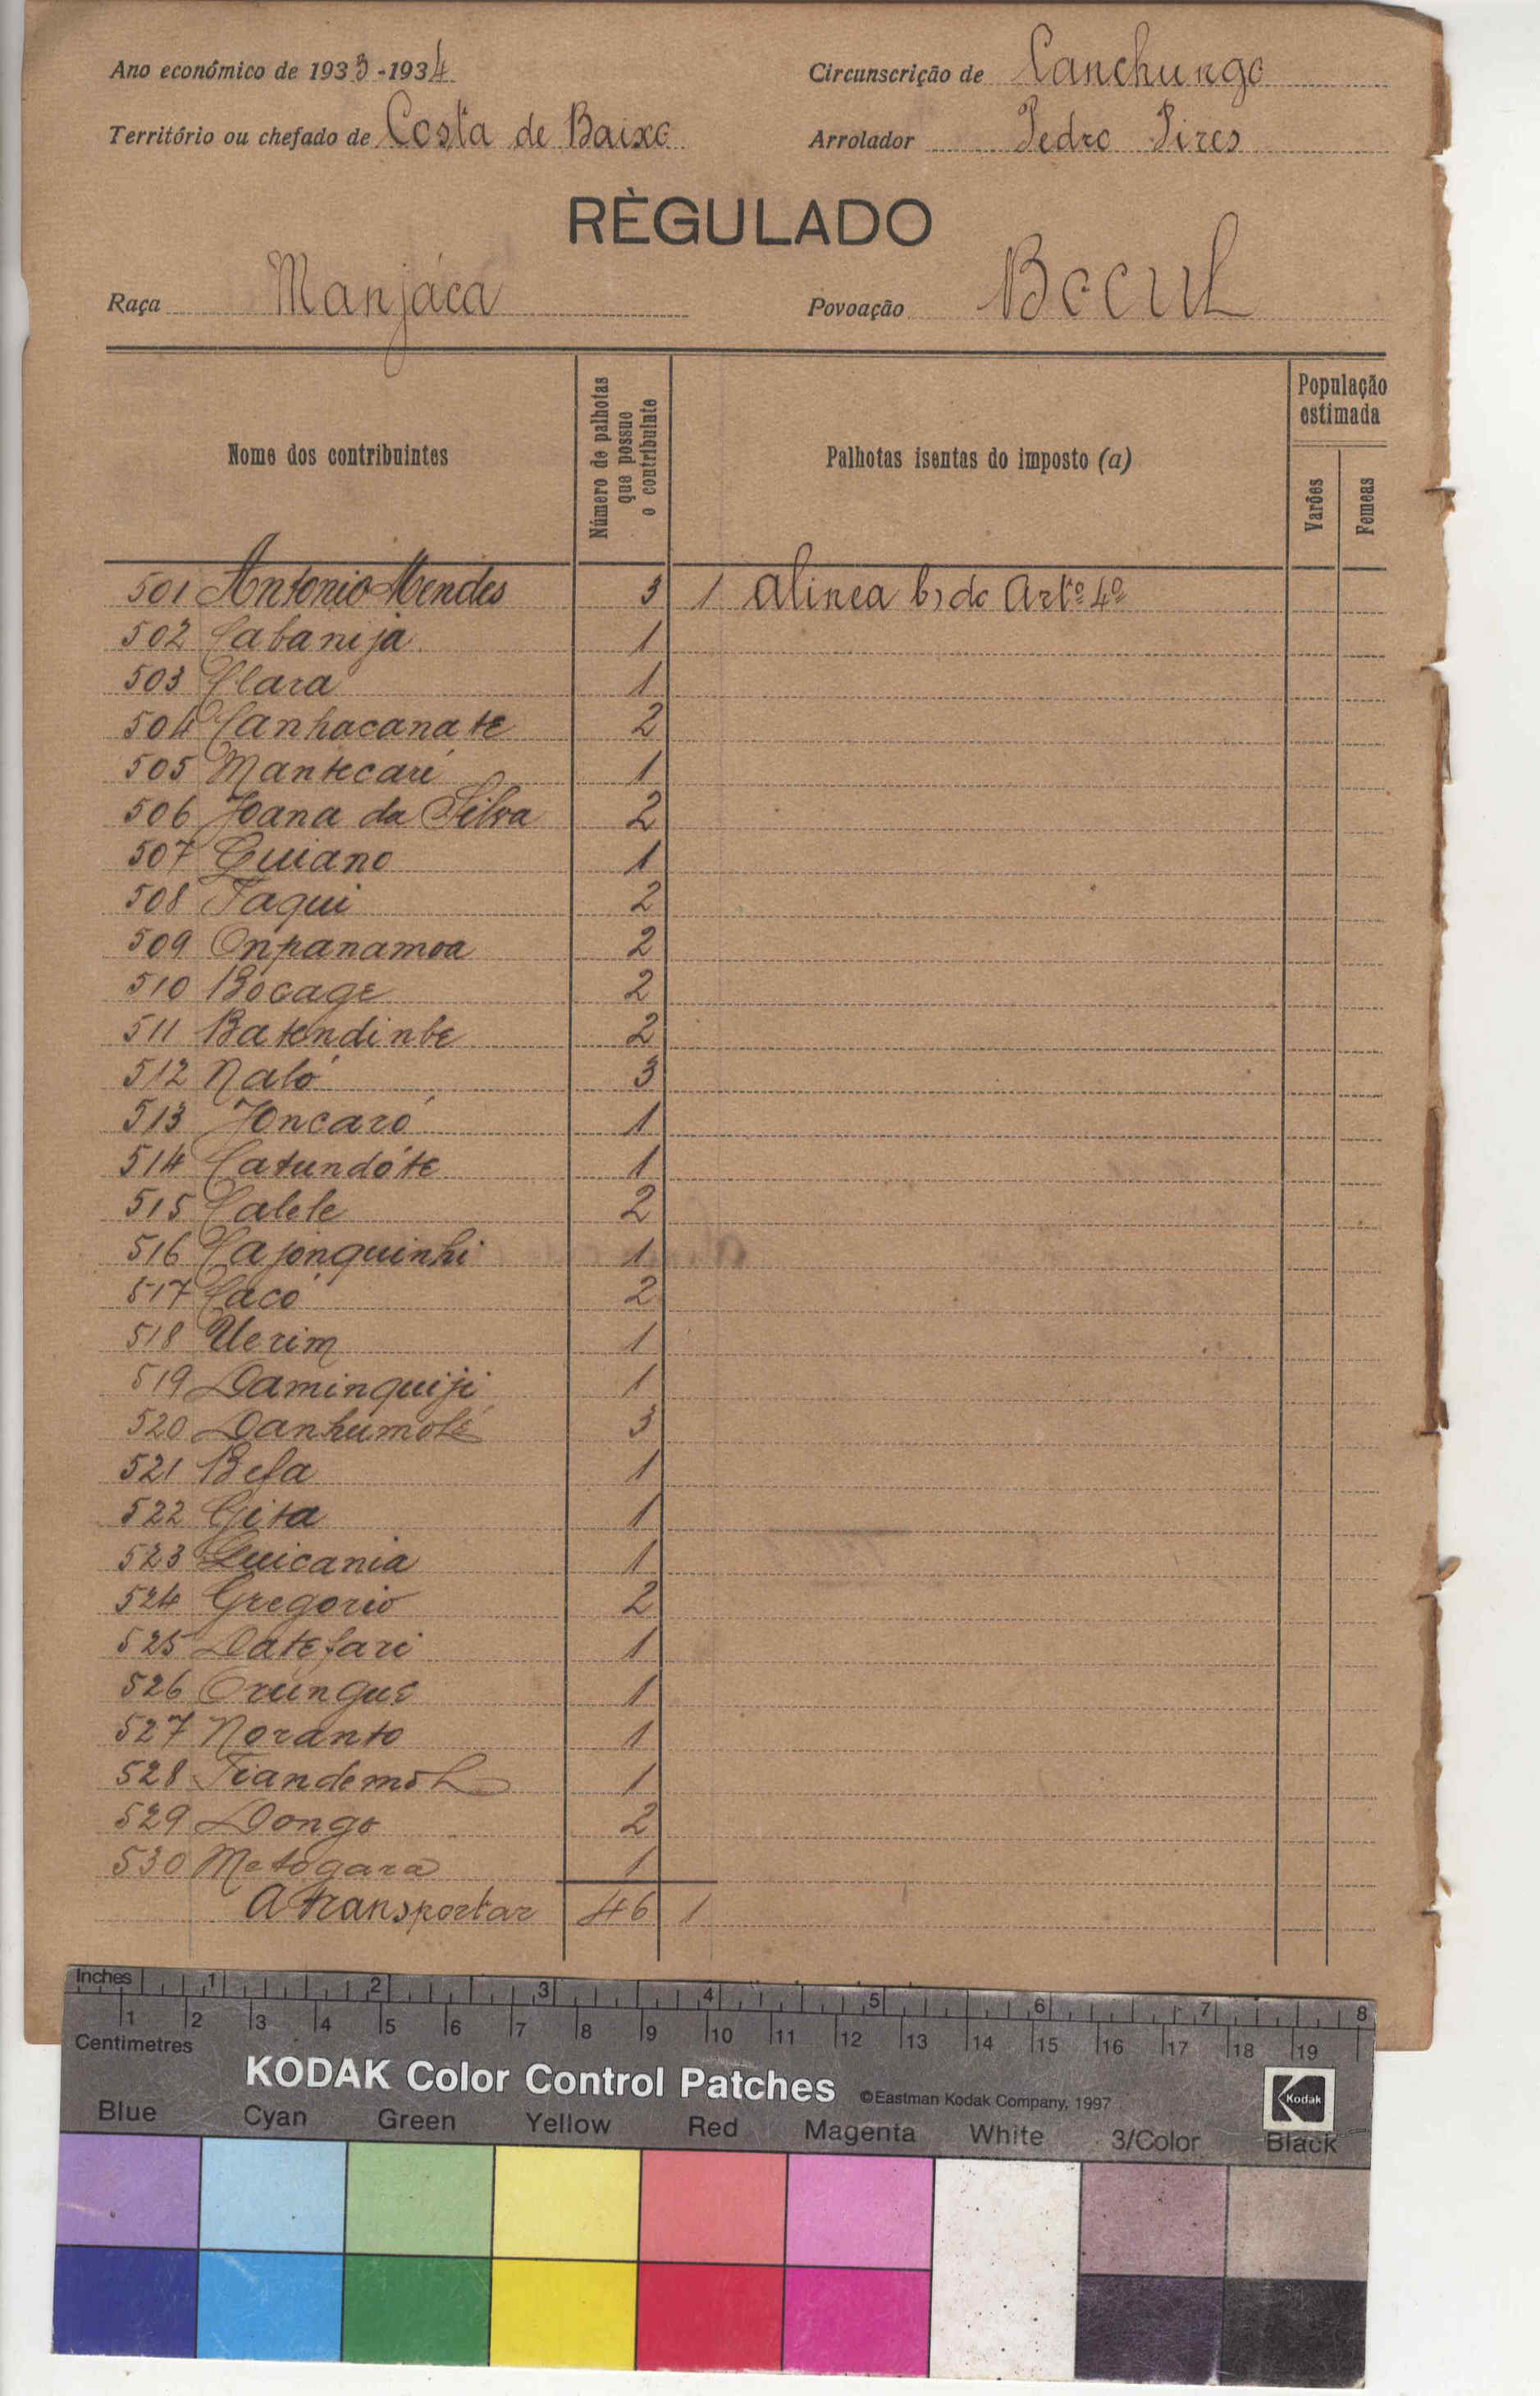 Ano económico de 1933-1934
Circunscrição de Canchungo
Território ou chefado de Costa de Baixo
Arrolador Pedro Pires
RÈGULADO
Raça Manjáca
Povoação Bocul
Nome dos contribuintes
Número de palhotas que possue o contribuinte
Palhotas isentas do imposto (a)
População estimada
Varões
Femeas
501 Antonio Mendes 3 1 alinea b) do Artº 4º
502 Cabanija 1
503 Clara 1
504 Canhacanate 2
505 Mantecari 1
506 Joana da Silva 2
507 Guiano 1
508 Taqui 2
509 Onpanamoa 2
510 Bocage 2
511 Batendinbe 2
512 Naló 3
513 Joncaró 1
514 Catundóte 1
515 Calele 2
516 Cajonquinhi 1
517 Cacó 2
518 Uerim 1
519 Daminquiji 1
520 Danhumolé 3
521 Befa 1
522 Gita 1
523 Quicania 1
524 Gregorio 2
525 Datefari 1
526 Orungue 1
527 Noranto 1
528 Tiandemól 1
529 Dongo 2
530 Metogara 1
A transportar 46 1
Inches 1 2 3 4 5 6 7 8
1 2 3 4 5 6 7 8 9 10 11 12 13 14 15 16 17 18 19
Centimetres
KODAK Color Control Patches ©Eastman Kodak Company, 1997 Kodak
Blue Cyan Green Yellow Red Magenta White 3/Color Black